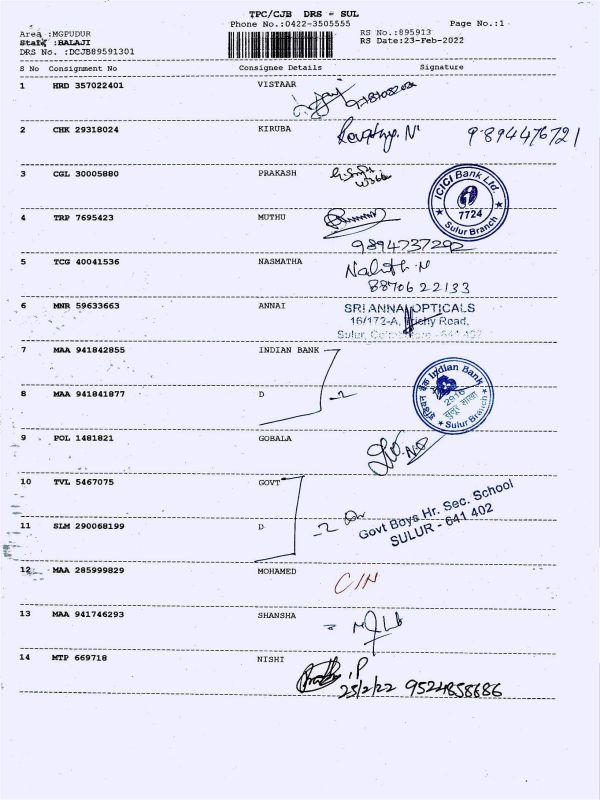 TPC/CJB DRS - SUL
Phone No.:0422-3505555
Page No.:1
Area :MGPUDUR
Staff :BALAJI
DRS No. :DCJB89591301
RS No.:895913
RS Date:23-Feb-2022
S No Consignment No Consignee Details Signature
1 HRD 357022401 VISTAAR
2 CHK 29318024 KIRUBA
9894476721
3 CGL 30005880 PRAKASH
ICICI Bank Ltd.
7724
Sulur Branch
4 TRP 7695423 MUTHU
9894737292
5 TCG 40041536 NASMATHA
8870622133
6 MNR 59633663 ANNAI
SRI ANNAI OPTICALS
16/172-A, Trichy Road,
Sulur,
7 MAA 941842855 INDIAN BANK
8 MAA 941841877 D
-2
Indian Bank
Sulur Branch
9 POL 1481821 GOBALA
10 TVL 5467075 GOVT
11 SLM 290068199 D
-2
Govt Boys Hr. Sec. School
SULUR - 641 402
12 MAA 285999829 MOHAMED
CIN
13 MAA 941746293 SHANSHA
14 MTP 669718 NISHI
25/2/22 9524858686